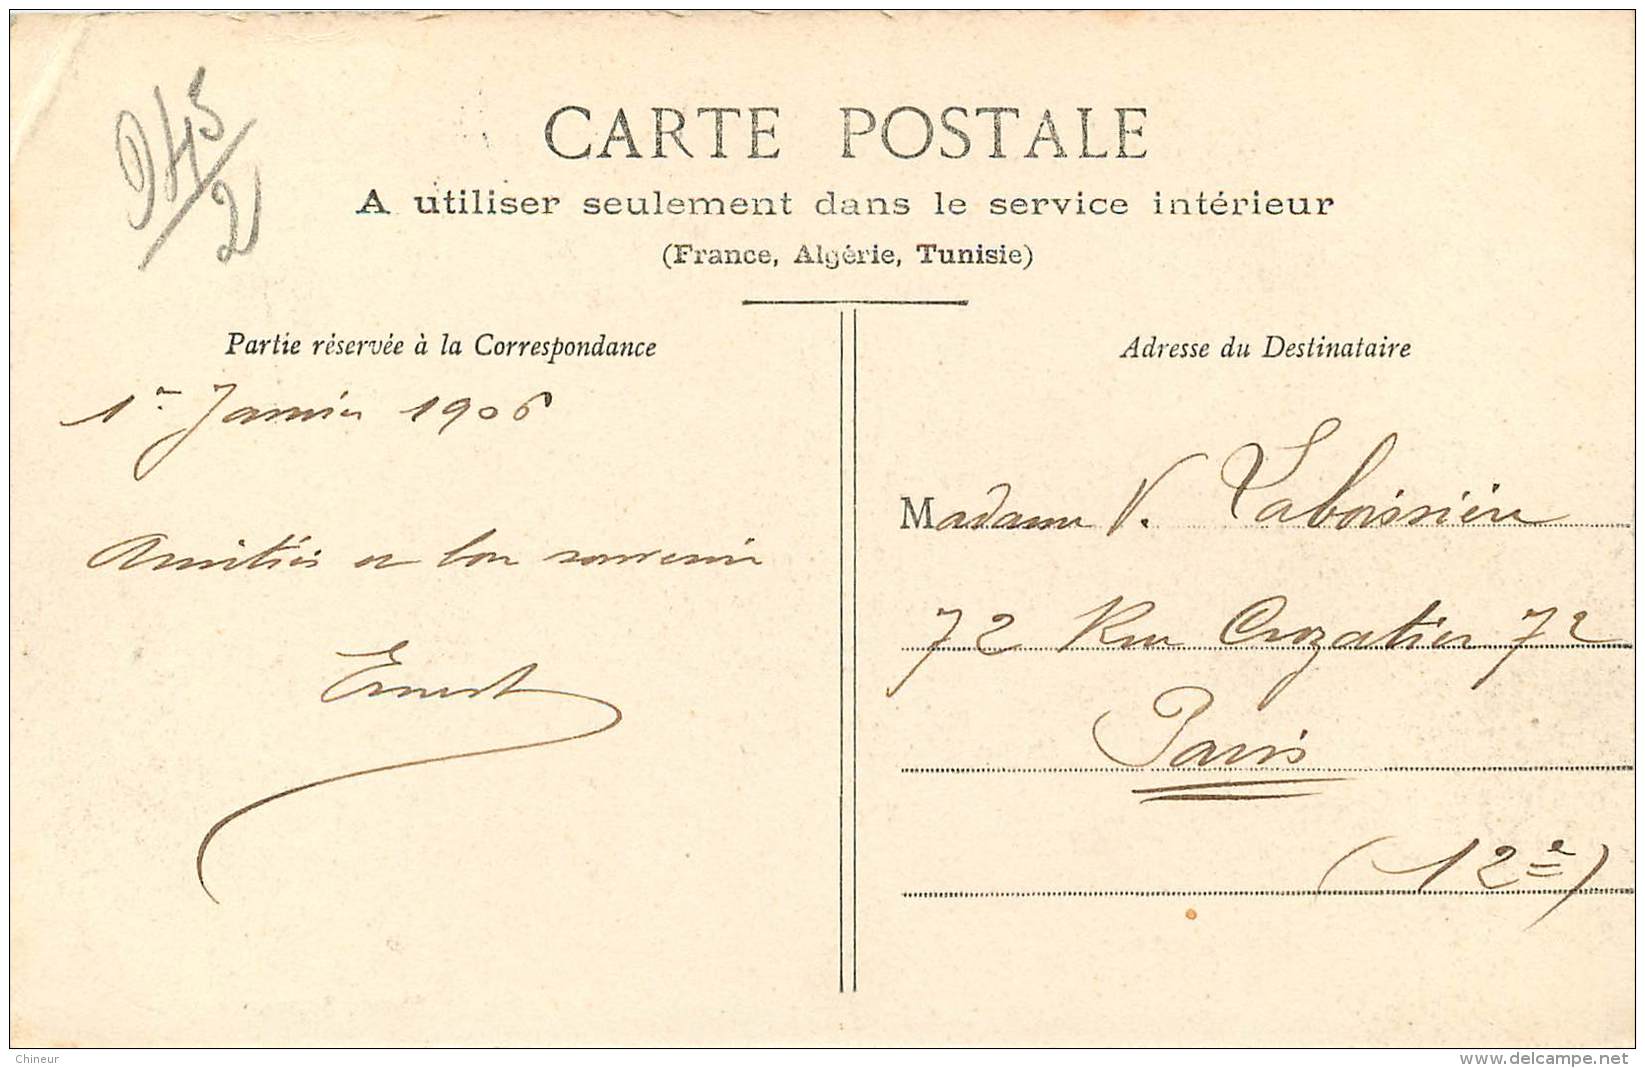 945
2
CARTE POSTALE
A utiliser seulement dans le service intérieur
(France, Algérie, Tunisie)
Partie réservée à la Correspondance
1er Janvier 1906
Amitiés et bon souvenir
Ernest
Adresse du Destinataire
Madame V. Laboissière
72 Rue Crozatier 72
Paris
(12e)
Chineur
www.delcampe.net